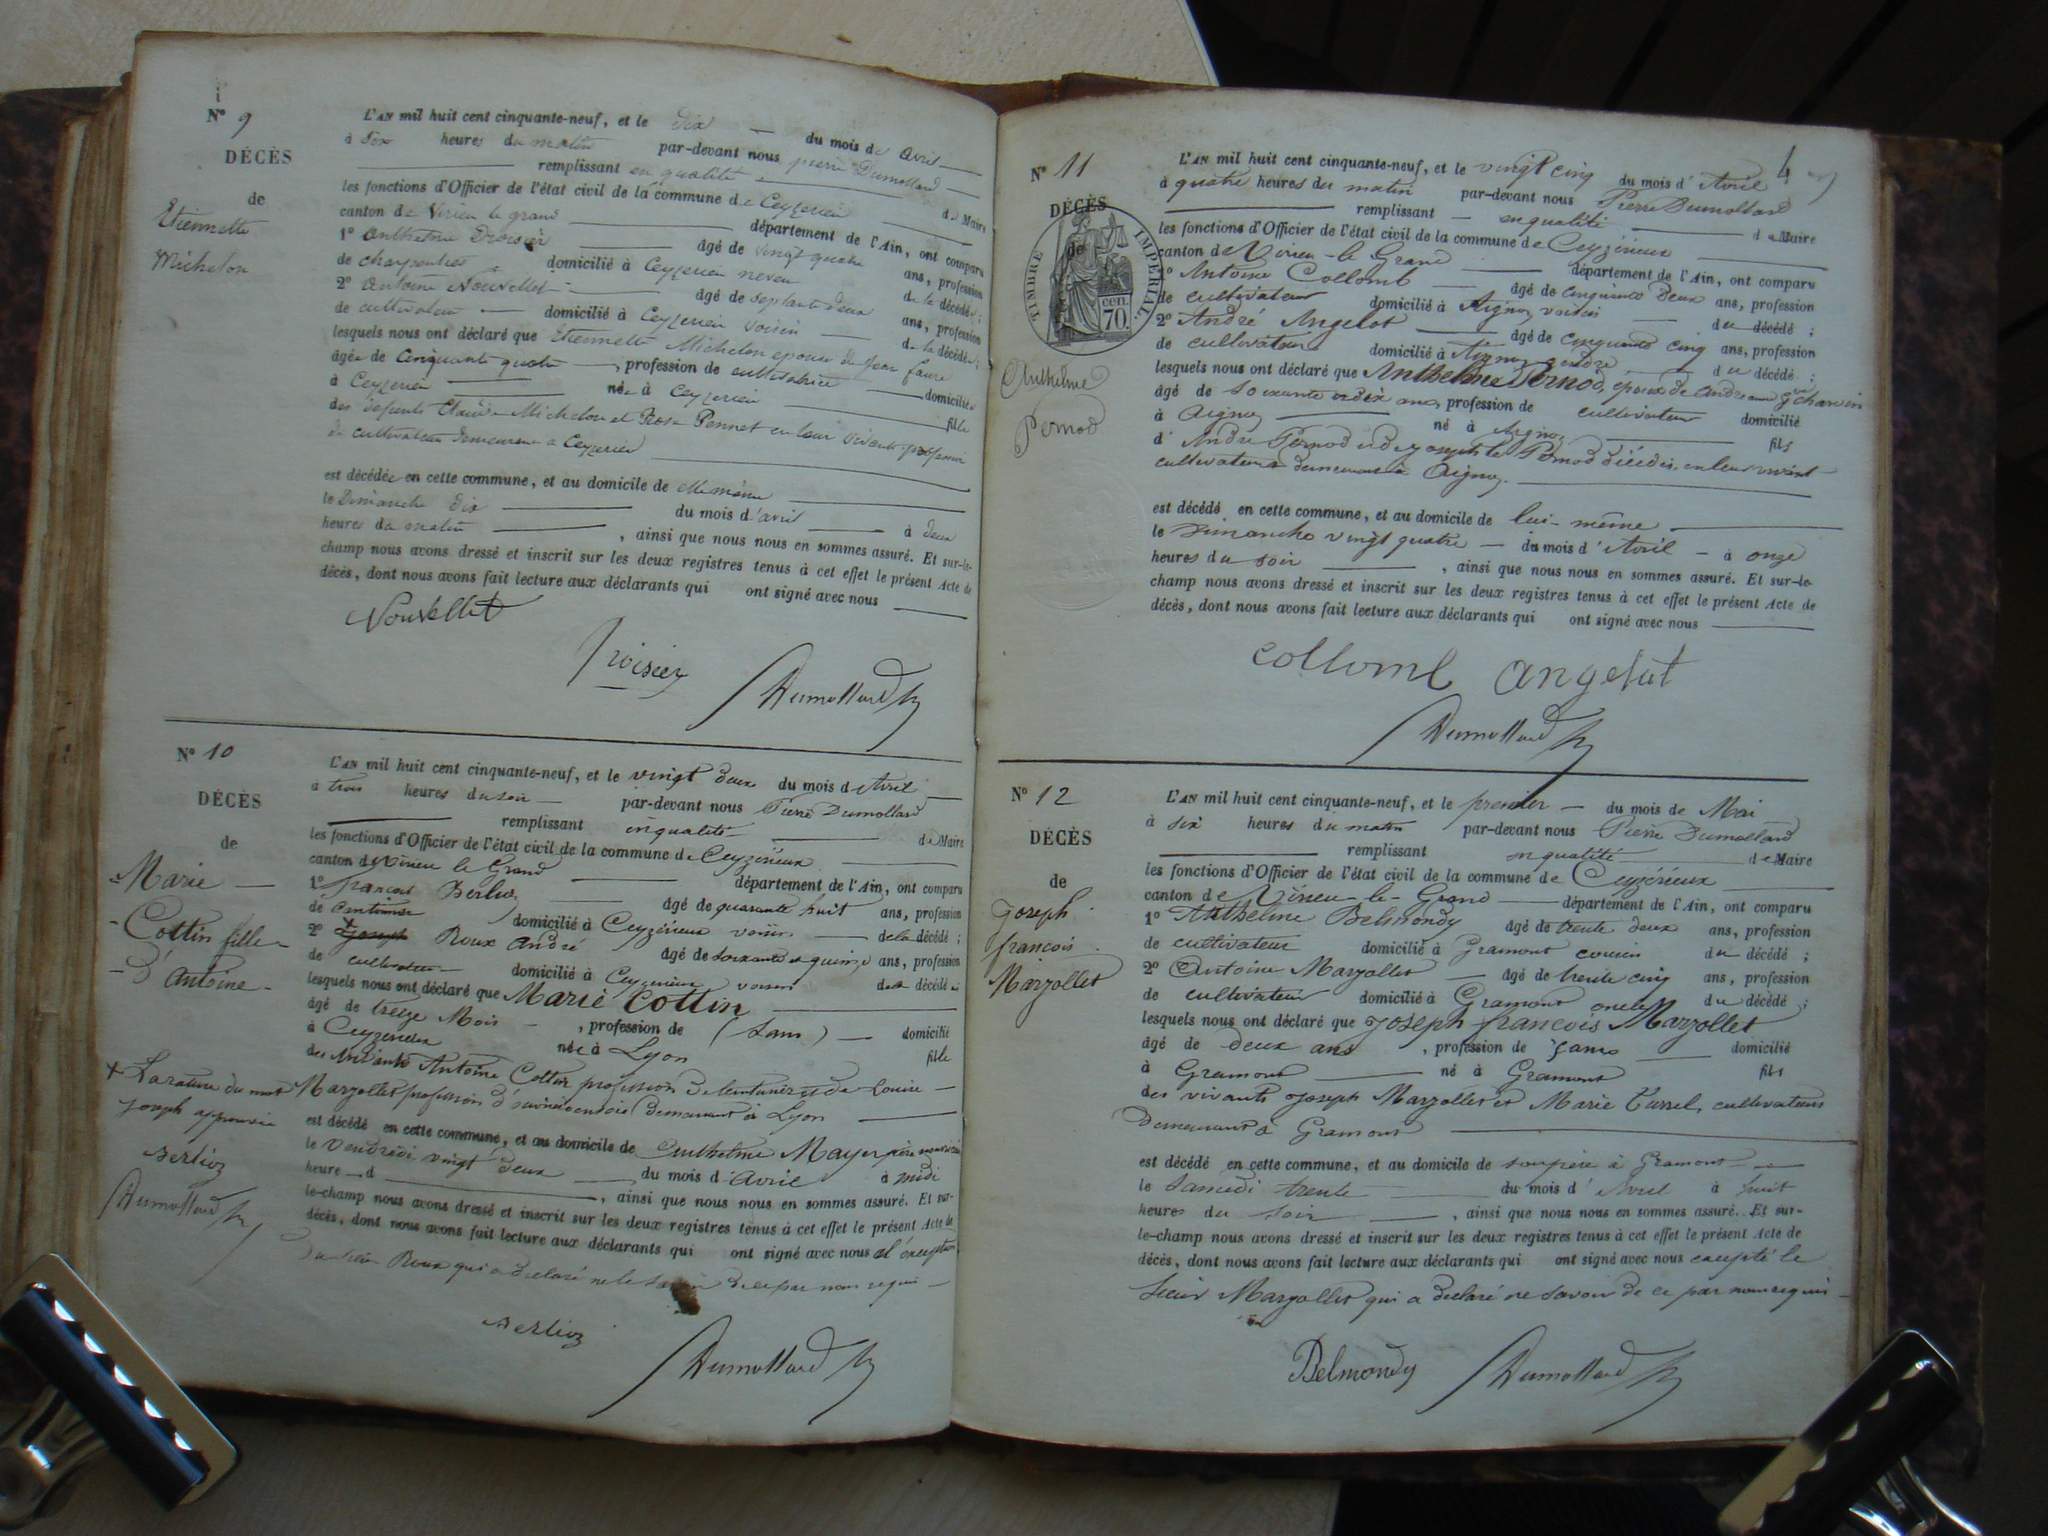 N° 9
DÉCÈS
de
Etiennette
Michelon
L'AN mil huit cent cinquante-neuf, et le dix — du mois de avril
à six heures du matin par-devant nous pierre Dumollard
remplissant en qualité de Maire
les fonctions d'Officier de l'état civil de la commune de Ceyzerieu
canton de Virieu le grand département de l'Ain, ont comparu
1° anthelme âgé de vingt quatre ans, profession
de charpentier domicilié à Ceyzerieu neveu de la décédée;
2° antoine Nouvellet âgé de septante deux ans, profession
de cultivateur domicilié à Ceyzerieu voisin de la décédée;
lesquels nous ont déclaré que Etiennette Michelon epouse de jean faure
âgée de Cinquante quatre, profession de cultivatrice domiciliée
à Ceyzerieu née à Ceyzerieu fille
des Claude Michelon et Rose Pennet en leur vivant profession
de cultivateur demeurant a Ceyzerieu
est décédée en cette commune, et au domicile de elle même
le Dimanche dix du mois d'avril à deux
heures du matin, ainsi que nous nous en sommes assuré. Et sur-le-
champ nous avons dressé et inscrit sur les deux registres tenus à cet effet le présent Acte de
décès, dont nous avons fait lecture aux déclarants qui ont signé avec nous
Nouvellet
Dumollard
N° 10
DÉCÈS
de
Marie
Cottin fille
D'antoine
L'AN mil huit cent cinquante-neuf, et le vingt deux du mois d'Avril
à trois heures du soir par-devant nous Pierre Dumollard
remplissant en qualité de Maire
les fonctions d'Officier de l'état civil de la commune de Ceyzérieux
canton de Virieu le Grand département de l'Ain, ont comparu
1° françois Berlioz âgé de quarante huit ans, profession
de domicilié à Ceyzérieux voisin de la décédé;
2° Joseph Roux André âgé de soixante et quinze ans, profession
de cultivateur domicilié à Ceyzerieux voisin de la décédé
lesquels nous ont déclaré que Marie Cottin
âgé de treize Mois, profession de (Sans) domicilié
à Ceyzerieux née à Lyon fille
des vivants Antoine Cottin profession De teinturier et de Louise
Marzollet profession d' Demeurant à Lyon
est décédé en cette commune, et au domicile de Anthelme Mayer père nourricier
le Vendredi vingt deux du mois d'Avril à midi
heure d, ainsi que nous nous en sommes assuré. Et sur-
le-champ nous avons dressé et inscrit sur les deux registres tenus à cet effet le présent Acte de
décès, dont nous avons fait lecture aux déclarants qui ont signé avec nous à l'éxception
Du sieur Roux qui a declaré ne le savoir De ce par nous requi
+ La rature du mot
joseph approuvée
Berlioz
Dumollard
Berlioz
Dumollard
4
N° 11
DÉCÈS
de
TIMBRE IMPÉRIAL.
cen.
70.
Anthelme
Pernod
L'AN mil huit cent cinquante-neuf, et le vingt cinq du mois d'Avril
à quatre heures du matin par-devant nous Pierre Dumollard
remplissant en qualité de Maire
les fonctions d'Officier de l'état civil de la commune de Ceyzérieux
canton de Virieu-le Grand département de l'Ain, ont comparu
1° Antoine Collomb âgé de cinquante deux ans, profession
de cultivateur domicilié à Aignoz voisin du décédé;
2° André Angelot âgé de cinquante cinq ans, profession
de cultivateur domicilié à Aignoz gendre du décédé;
lesquels nous ont déclaré que Anthelme Pernod, époux de Andréanne
âgé de soixante et dix ans, profession de cultivateur domicilié
à Aignoz né à Aignoz fils
d'André Pernod et de Josephte Pernod décédés, en leur vivant
cultivateurs demeurant à Aignoz.
est décédé en cette commune, et au domicile de lui-même
le Dimanche vingt quatre du mois d'Avril à onze
heures du soir, ainsi que nous nous en sommes assuré. Et sur-le-
champ nous avons dressé et inscrit sur les deux registres tenus à cet effet le présent Acte de
décès, dont nous avons fait lecture aux déclarants qui ont signé avec nous
collomb angelot
Dumollard
N° 12
DÉCÈS
de
joseph
françois
Marzollet
L'AN mil huit cent cinquante-neuf, et le premier du mois de Mai
à six heures du matin par-devant nous Pierre Dumollard
remplissant en qualité de Maire
les fonctions d'Officier de l'état civil de la commune de Ceyzérieux
canton de Virieu-le-Grand département de l'Ain, ont comparu
1° Anthelme Belmondy âgé de trente deux ans, profession
de cultivateur domicilié à Gramont cousin du décédé;
2° Antoine Marzollet âgé de trente cinq ans, profession
de cultivateur domicilié à Gramont oncle du décédé;
lesquels nous ont déclaré que Joseph françois Marzollet
âgé de deux ans, profession de sans domicilié
à Gramont né à Gramont fils
des vivants Joseph Marzollet et Marie Turrel, cultivateurs
Demeurant à Gramont
est décédé en cette commune, et au domicile de son père à Gramont
le Samedi trente du mois d'Avril à huit
heures du soir, ainsi que nous nous en sommes assuré. Et sur-
le-champ nous avons dressé et inscrit sur les deux registres tenus à cet effet le présent Acte de
décès, dont nous avons fait lecture aux déclarants qui ont signé avec nous excepté le
Sieur Marzollet qui a declaré ne savoir de ce par nous requis
Belmondy Dumollard